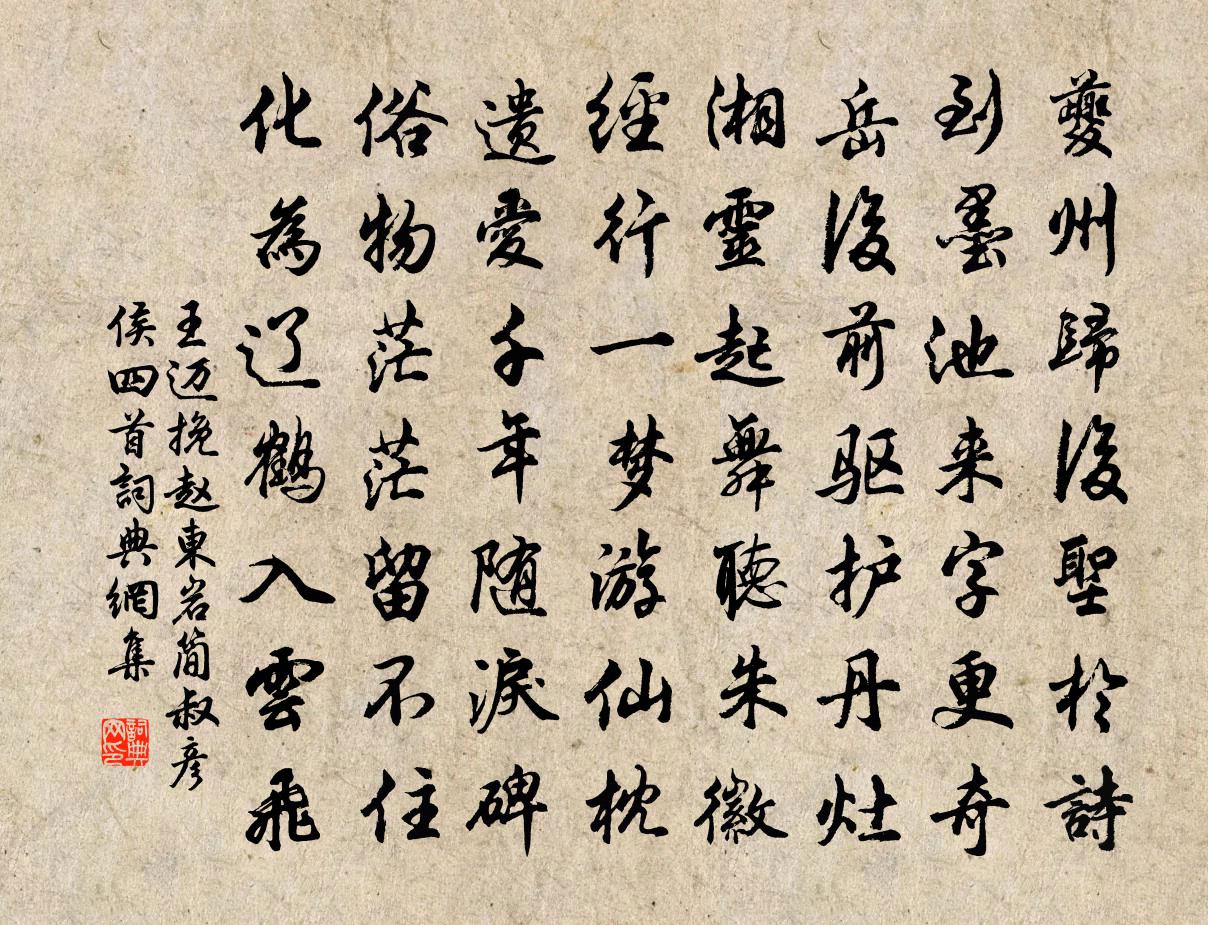 夔州歸後聖於詩
到墨池来字更奇
岳後前驱护丹灶
湘靈起舞聽朱徽
經行一梦游仙枕
遗愛千年随淚碑
俗物茫茫留不住
化為辽鶴入雲飛
王迈挽赵東岩简叔彦
侯四首詞典網集
詞典网印